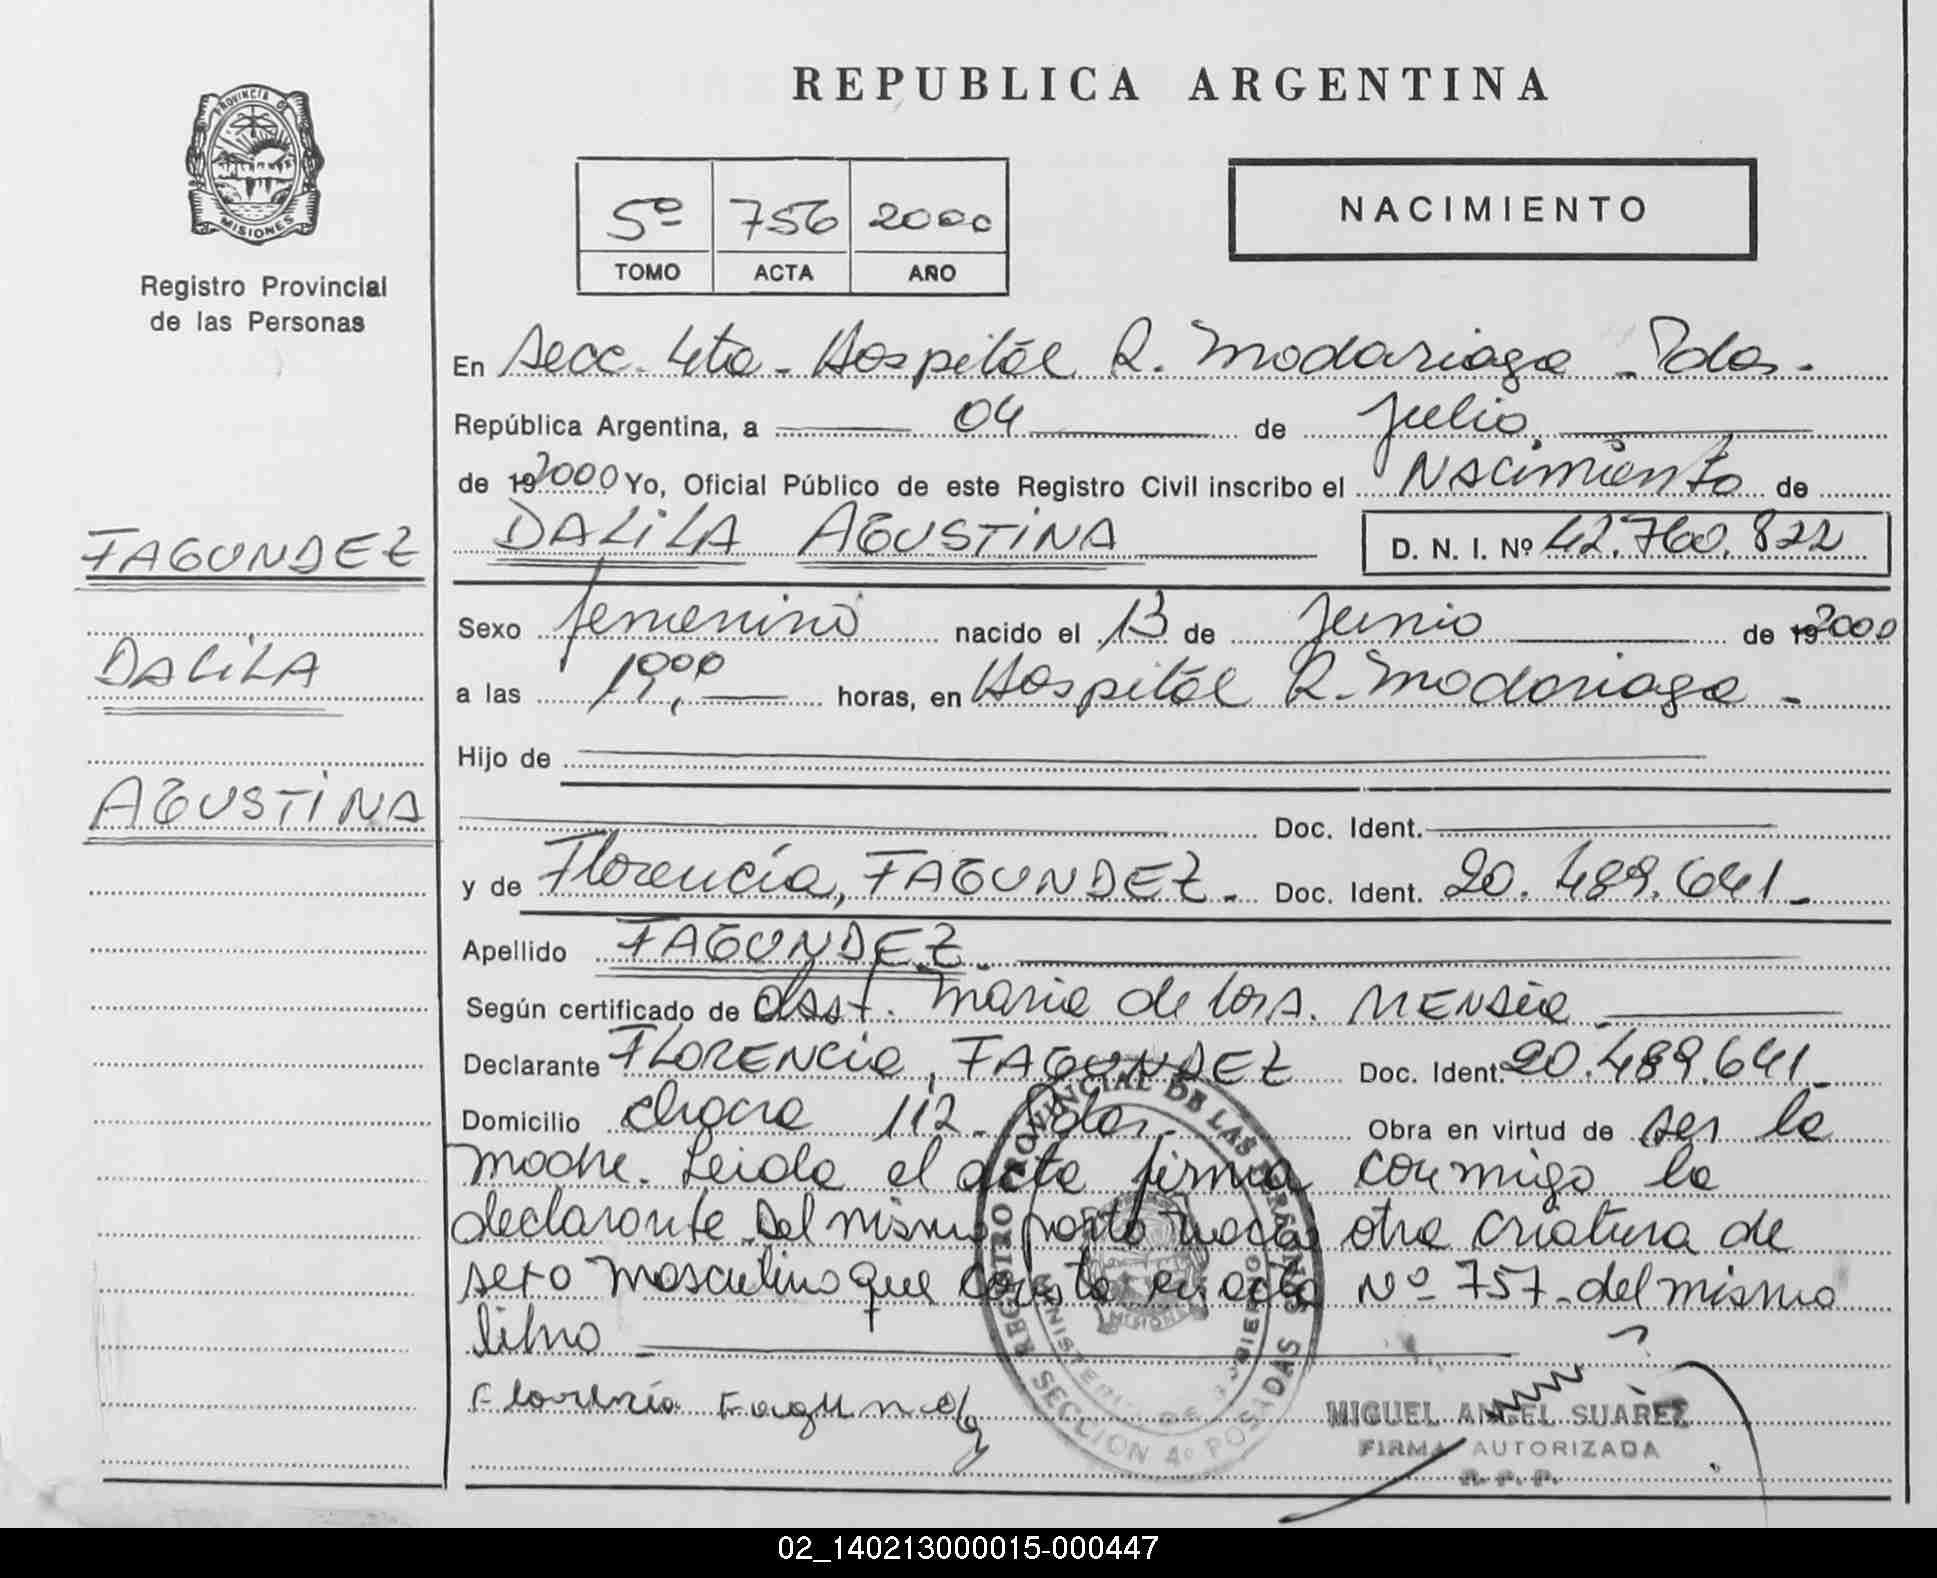 REPUBLICA ARGENTINA
PROVINCIA DE
MISIONES
Registro Provincial
de las Personas
5º 756 2000
TOMO ACTA AÑO
NACIMIENTO
En Secc. 4ta - Hospital R. Madariaga - Pdas.
República Argentina, a 04 de Julio
de 192000 Yo, Oficial Público de este Registro Civil inscribo el Nacimiento de
DALILA AGUSTINA D. N. I. Nº 42.760.822
FAGUNDEZ
DALILA
AGUSTINA
Sexo femenino nacido el 13 de Junio de 192000
a las 19,00 horas, en Hospital R. Madariaga -
Hijo de
Doc. Ident.
y de Florencia, FAGUNDEZ. Doc. Ident. 20.489.641.
Apellido FAGUNDEZ.
Según certificado de Obst. Maria de los A. MENDEZ
Declarante FLORENCIA, FAGUNDEZ Doc. Ident. 20.489.641.
Domicilio Chacra 112. Pdas. Obra en virtud de ser la
madre. Leida el acta firma conmigo la
declarante. Del mismo parto nació otra criatura de
sexo masculino que consta en acta Nº 757 del mismo
libro
Florencia Fagundez
REGISTRO PROVINCIAL DE LAS PERSONAS
MINISTERIO DE GOBIERNO
MISIONES
SECCION 4º POSADAS
MIGUEL ANGEL SUAREZ
FIRMA AUTORIZADA
R. P. P.
02_140213000015-000447